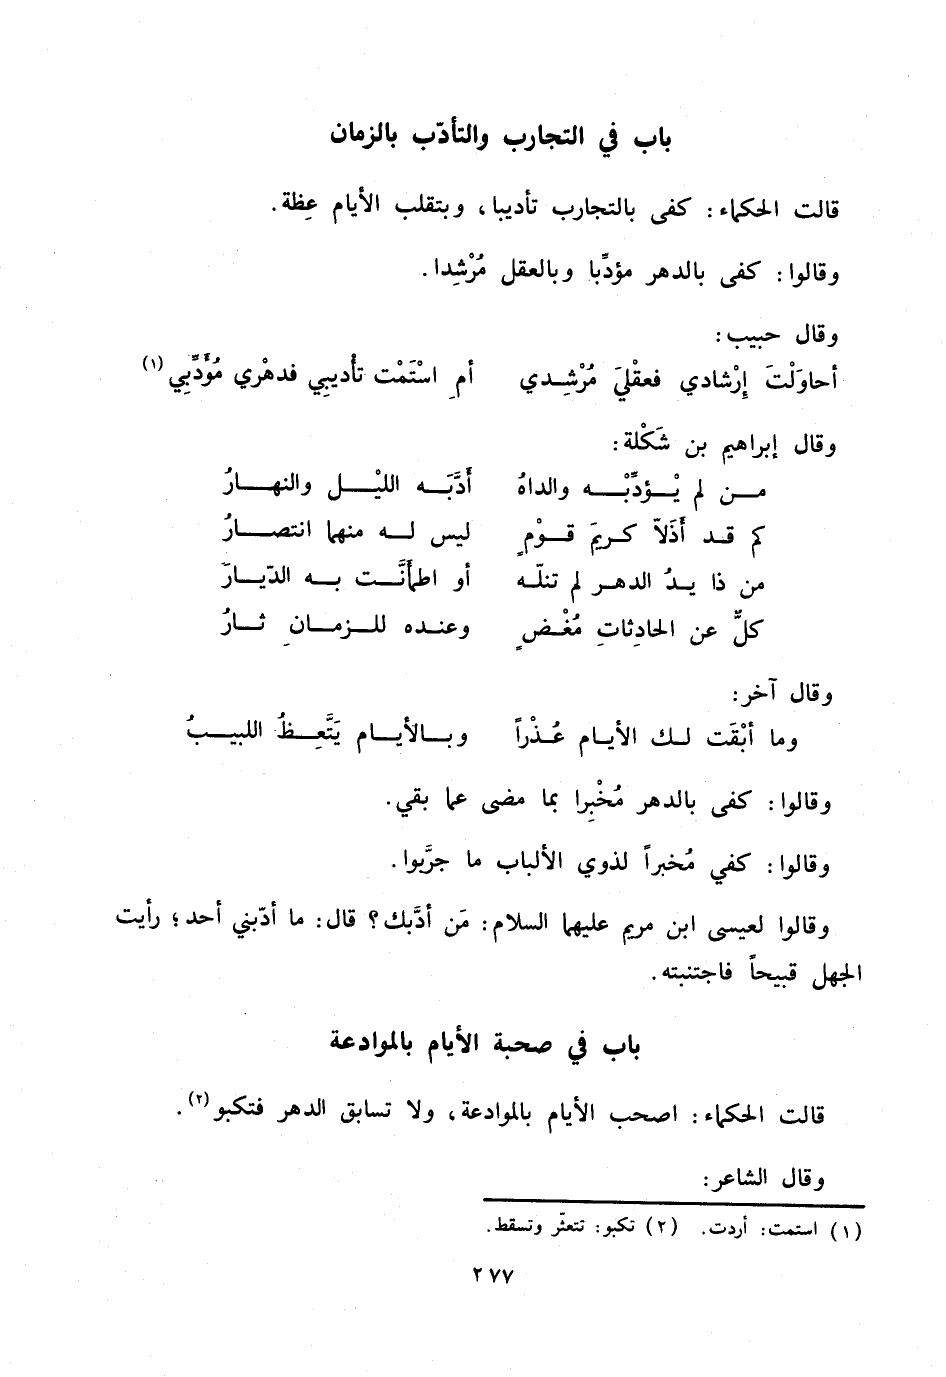 باب في التجارب والتأدّب بالزمان
قالت الحكماء: كفى بالتجارب تأديبا، وبتقلب الأيام عِظة.
وقالوا: كفى بالدهر مؤدِّبا وبالعقل مُرْشِدا.
وقال حبيب:
أحاوَلْتَ إرْشادي فعقْليَ مُرْشِدي أمِ اسْتَمْت تأْديبِي فدهْري مُؤَدِّبي (١)
وقال إبراهيم بن شَكْلة:
من لم يْؤدِّبْه والداهُ أدَّبَه الليْل والنهارُ
كم قد أَذَلاّ كريمَ قوْمٍ ليس له منهما انتصارُ
من ذا يدُ الدهر لم تنلّه أو اطمأنَّت به الدّيارَ
كلٌّ عن الحادِثاتِ مُغْضٍ وعنده للزمانِ ثارُ
وقال آخر:
وما أبْقَت لك الأيام عُذْراً وبالأيام يَتَّعِظُ اللبيبُ
وقالوا: كفى بالدهر مُخْبِرا بما مضى عما بقي.
وقالوا: كفي مُخبراً لذوي الألباب ما جرَّبوا.
وقالوا لعيسى ابن مريم عليهما السلام: مَن أدَّبك؟ قال: ما أدّبني أحد؛ رأيت
الجهل قبيحاً فاجتنبته.
باب في صحبة الأيام بالموادعة
قالت الحكماء: اصحب الأيام بالموادعة، ولا تسابق الدهر فتكبو (٢).
وقال الشاعر:
(١) استمت: أردت. (٢) تكبو: تتعثّر وتسقط.
٢٧٧